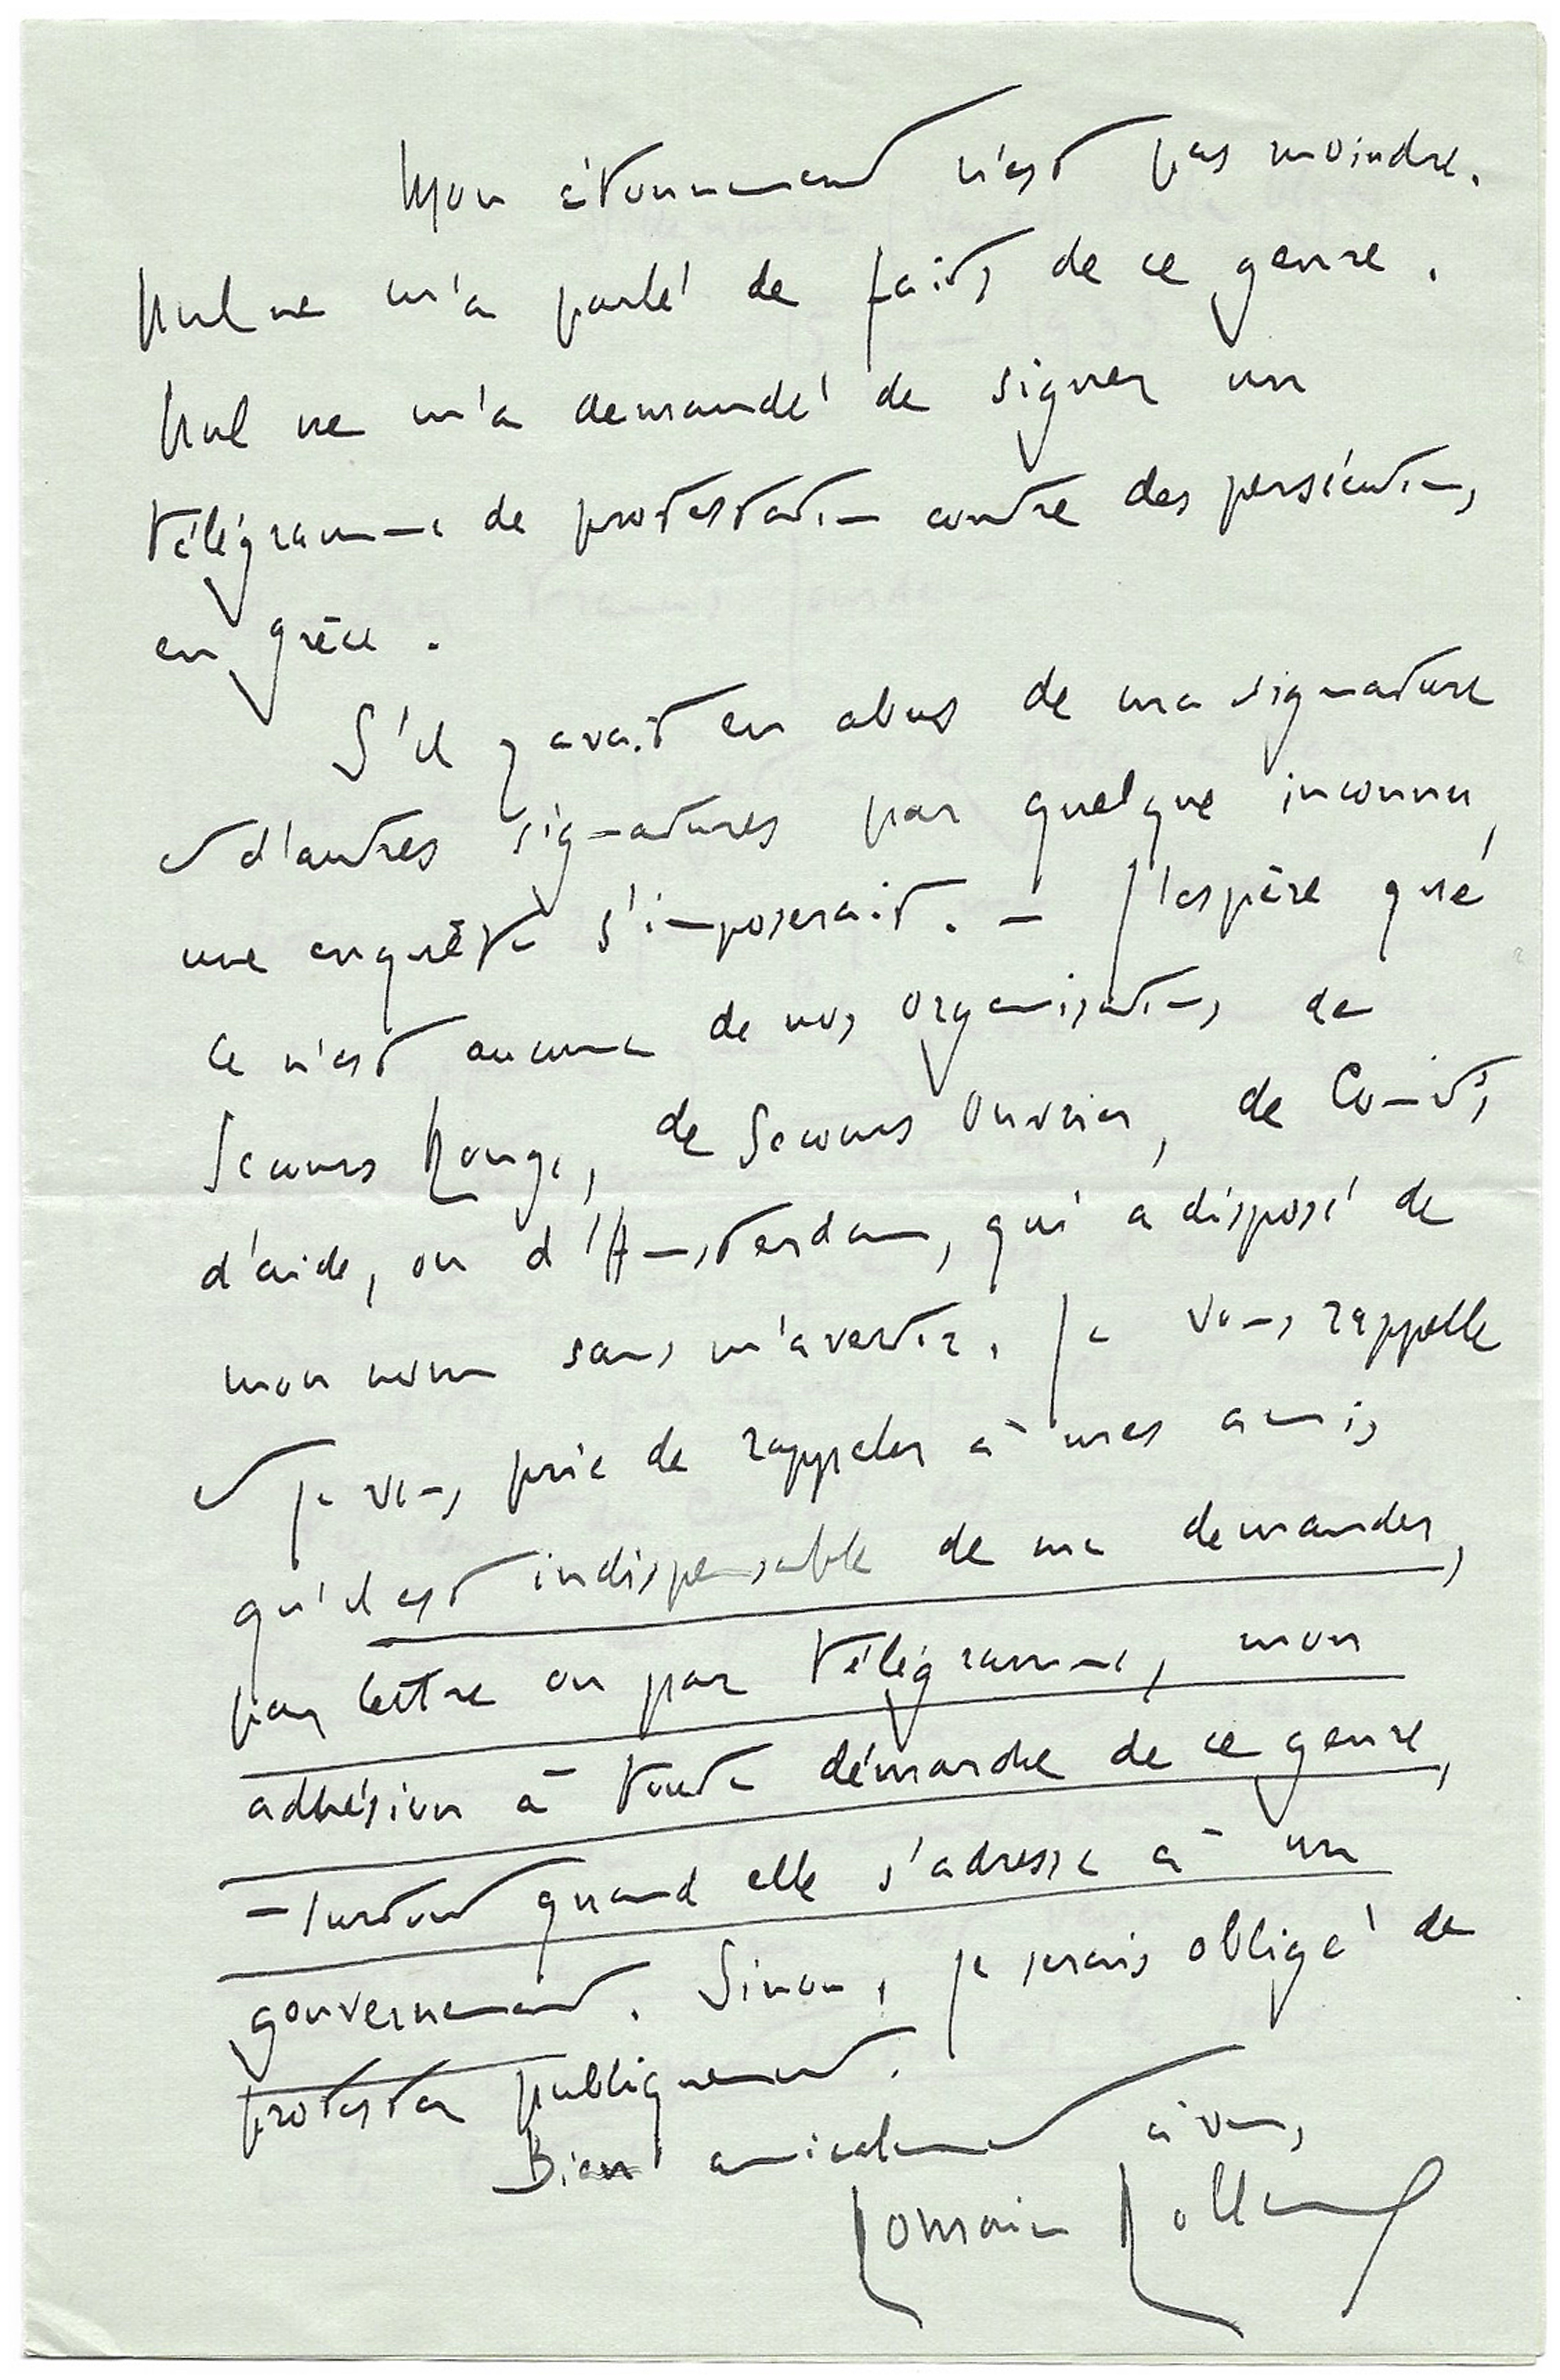 Mon étonnement n'est pas moindre.
Nul ne m'a parlé de faits de ce genre.
Nul ne m'a demandé de signer un
télégramme de protestation contre des persécutions
en Grèce.
S'il y avait eu abus de ma signature
et d'autres signatures par quelque inconnu,
une enquête s'imposerait. – J'espère que
ce n'est aucune de nos organisations de
Secours Rouge, de Secours Ouvrier, de Comités
d'aide, ou d'Amsterdam, qui a disposé de
mon nom sans m'avertir. Je vous rappelle
et je vous prie de rappeler à mes amis
qu'il est indispensable de me demander,
par lettre ou par télégramme, mon
adhésion à toute démarche de ce genre,
– surtout quand elle s'adresse à un
gouvernement. Sinon, je serais obligé de
protester publiquement.
Bien amicalement à vous,
Romain Rolland